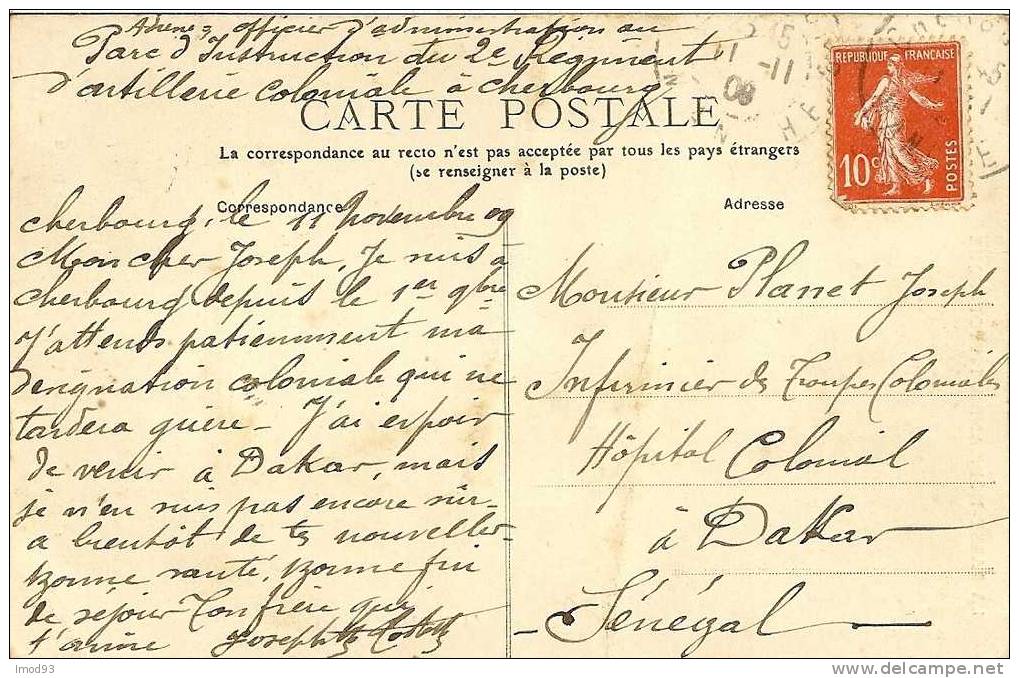 Adresse, officier d'administration au
Parc d'Instruction du 2e Régiment
d'artillerie coloniale à Cherbourg
CARTE POSTALE
La correspondance au recto n'est pas acceptée par tous les pays étrangers
(se renseigner à la poste)
Correspondance
Cherbourg, le 11 Novembre 09
Mon cher Joseph, Je suis à
Cherbourg depuis le 1er 9bre
J'attends patiemment ma
désignation coloniale qui ne
tardera guère - J'ai espoir
de venir à Dakar, mais
je n'en suis pas encore sûr -
à bientôt de tes nouvelles -
bonne santé, bonne fin
de séjour Ton frère qui
t'aime Joseph
Adresse
REPUBLIQUE FRANÇAISE
10c
POSTES
11 -11
09
Monsieur Planet Joseph
Infirmier des Troupes Coloniales
Hôpital Colonial
à Dakar
- Sénégal -
lmod93
delcampe.net